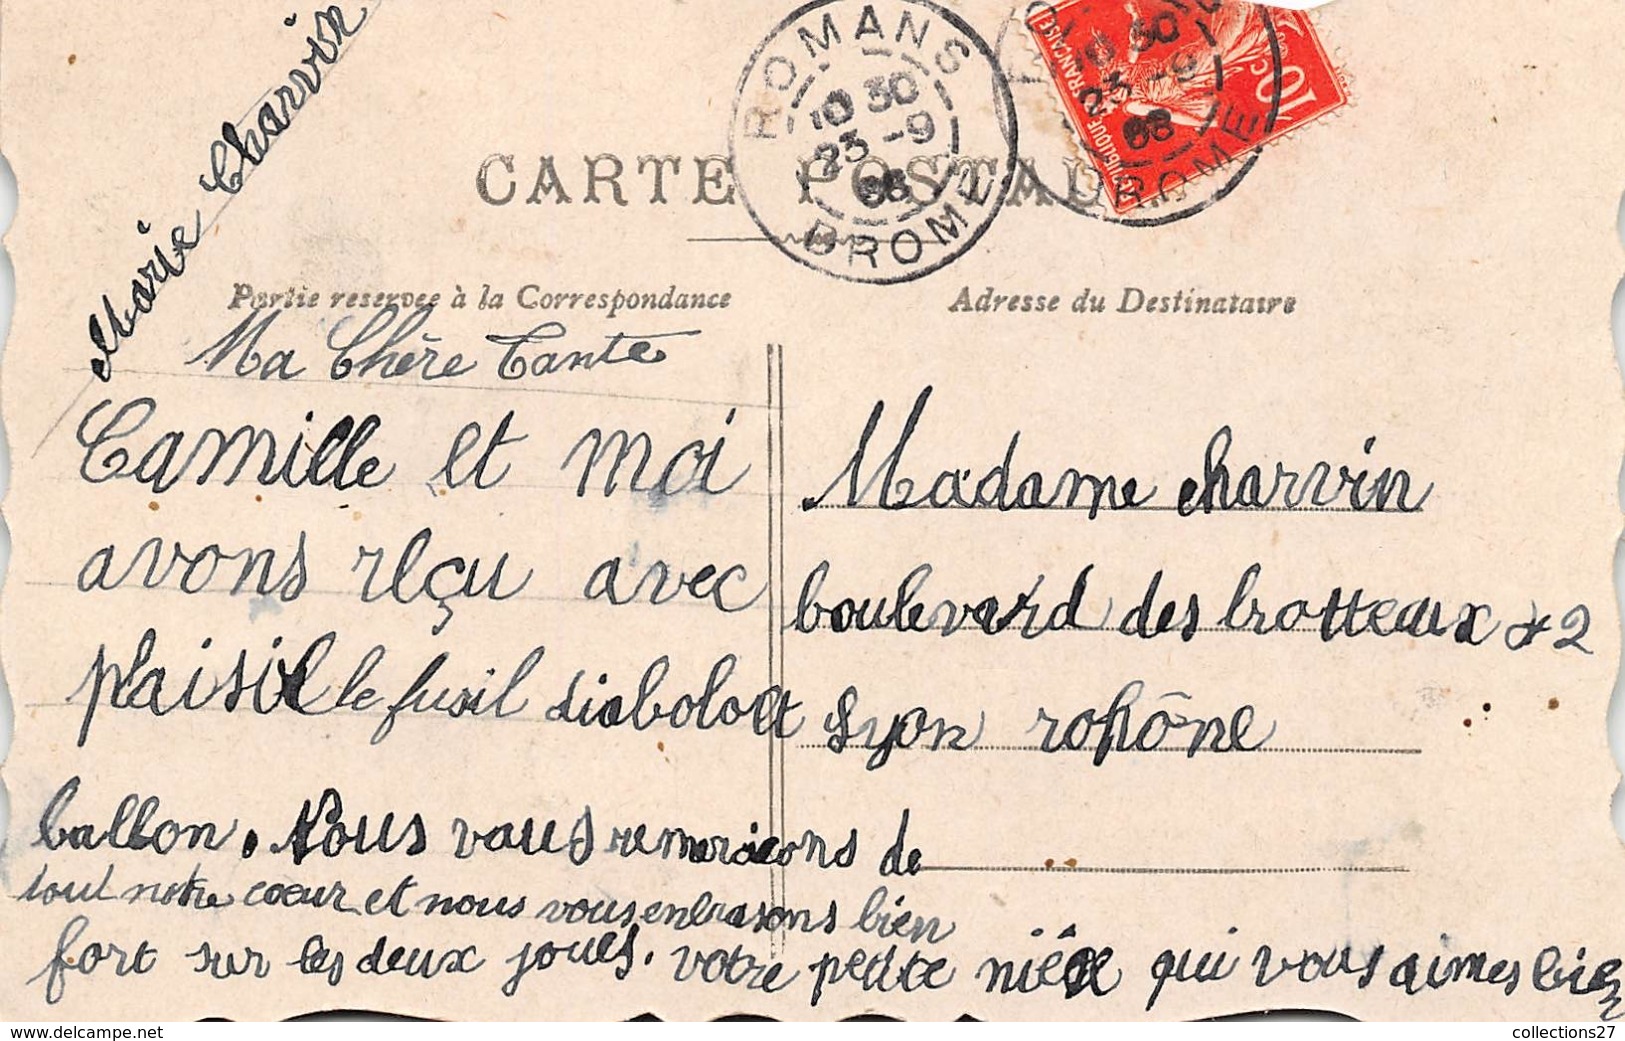 Marie Charvin
ROMANS
10 30
23 -9
DROME
10 30
23 -9
08
DROME
RÉPUBLIQUE FRANÇAISE
10c
CARTE POSTALE
Partie reservee à la Correspondance
Adresse du Destinataire
Ma Chère Tante
Camille et moi
avons reçu avec
plaisir le fusil diabolo et
ballon. Nous vous remercions de
tout notre coeur et nous vous enbrasons bien
fort sur les deux joues. votre petite nièce qui vous aimes bien
Madame charvin
boulevard des brotteaux 2
Lyon rohône
collections27